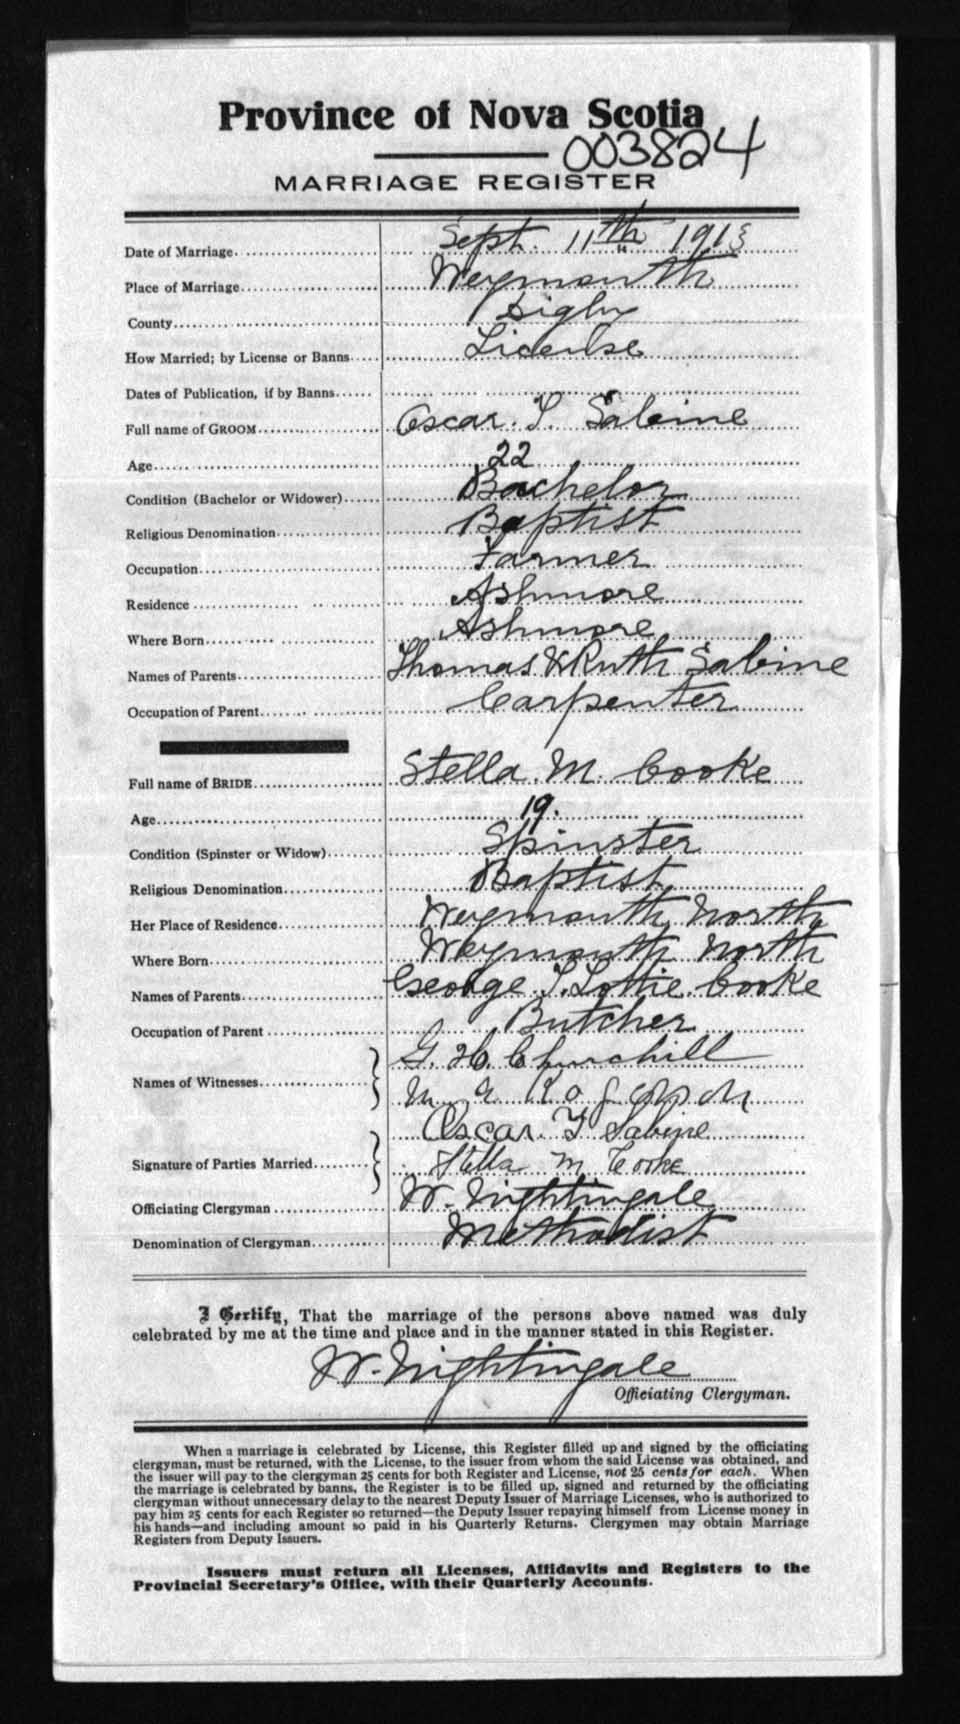 Province of Nova Scotia
003824
MARRIAGE REGISTER
Date of Marriage Sept. 11th 1913
Place of Marriage Weymouth
County Digby
How Married; by License or Banns License
Dates of Publication, if by Banns
Full name of GROOM Oscar. T. Sabine
Age 22
Condition (Bachelor or Widower) Bachelor
Religious Denomination Baptist
Occupation Farmer
Residence Ashmore
Where Born Ashmore
Names of Parents Thomas & Ruth Sabine
Occupation of Parent Carpenter
Full name of BRIDE Stella. M. Cooke
Age 19.
Condition (Spinster or Widow) Spinster
Religious Denomination Baptist
Her Place of Residence Weymouth North
Where Born Weymouth North
Names of Parents George T. Lottie Cooke
Occupation of Parent Butcher
Names of Witnesses G. H. Churchill
Signature of Parties Married Oscar. T Sabine
Stella M Cooke
Officiating Clergyman W. Nightingale
Denomination of Clergyman Methodist
I Certify, That the marriage of the persons above named was duly
celebrated by me at the time and place and in the manner stated in this Register.
W. Nightingale
Officiating Clergyman.
When a marriage is celebrated by License, this Register filled up and signed by the officiating
clergyman, must be returned, with the License, to the issuer from whom the said License was obtained, and
the issuer will pay to the clergyman 25 cents for both Register and License, not 25 cents for each. When
the marriage is celebrated by banns, the Register is to be filled up, signed and returned by the officiating
clergyman without unnecessary delay to the nearest Deputy Issuer of Marriage Licenses, who is authorized to
pay him 25 cents for each Register so returned—the Deputy Issuer repaying himself from License money in
his hands—and including amount so paid in his Quarterly Returns. Clergymen may obtain Marriage
Registers from Deputy Issuers.
Issuers must return all Licenses, Affidavits and Registers to the
Provincial Secretary's Office, with their Quarterly Accounts.